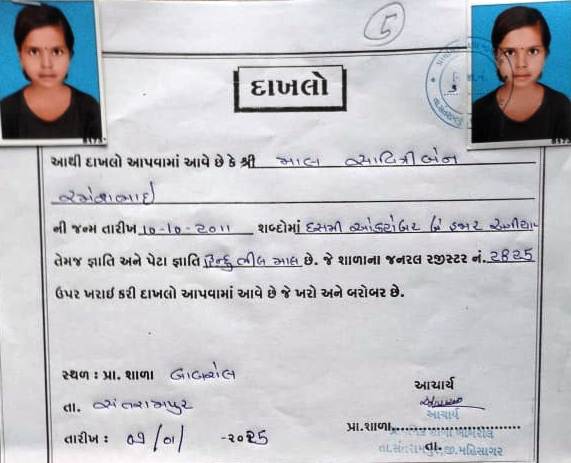 5
દાખલો
આથી દાખલો આપવામાં આવે છે કે શ્રી માલ સાવિત્રીબેન
રમેશભાઈ
ની જન્મ તારીખ ૧૦-૧૦-૨૦૧૧ શબ્દોમાં દસમી ઓક્ટોબર બે હજાર અગીયાર
તેમજ જ્ઞાતિ અને પેટા જ્ઞાતિ હિન્દુ ભીલ માલ છે. જે શાળાના જનરલ રજીસ્ટર નં. ૨૪૨૫
ઉપર ખરાઈ કરી દાખલો આપવામાં આવે છે જે ખરો અને બરોબર છે.
સ્થળ : પ્રા. શાળા બાબરોલ
આચાર્ય
તા. સંતરામપુર
આચાર્ય
પ્રા.શાળા
તારીખ : ૦૧/૦૧/-૨૦૨૫
તા.સંતરામપુર,જી.મહિસાગર